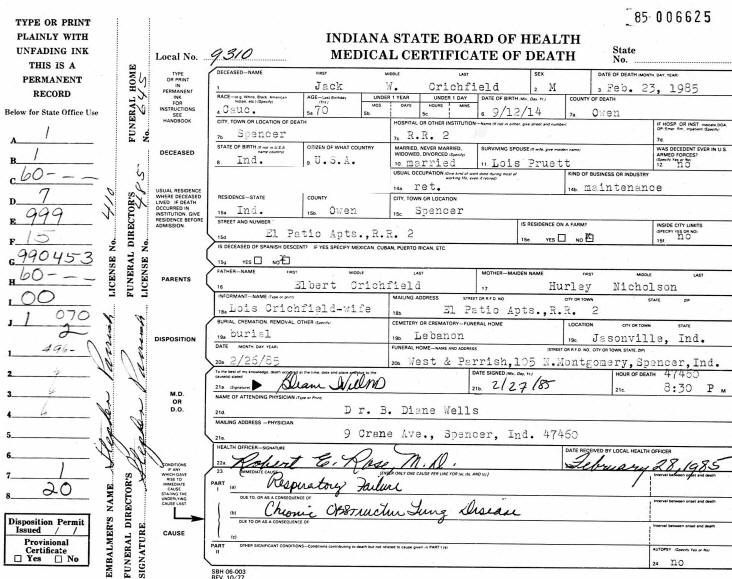 85- 006625
TYPE OR PRINT
PLAINLY WITH
UNFADING INK
THIS IS A
PERMANENT
RECORD
Below for State Office Use
A. 1
B. 1
C. 60---
D. 7
E. 999
F. 15
G. 990453
H. 60---
I. 00
J. 1 070
2
1. 496-
2.
3.
4.
5.
6.
7. 1
8. 20
Disposition Permit
Issued / /
Provisional
Certificate
☐ Yes ☐ No
EMBALMER'S NAME LICENSE No. 410
FUNERAL DIRECTOR'S SIGNATURE
FUNERAL DIRECTOR'S LICENSE No. 485
FUNERAL HOME No. 645
INDIANA STATE BOARD OF HEALTH
MEDICAL CERTIFICATE OF DEATH
Local No. 9310
State
No.
TYPE
OR PRINT
IN
PERMANENT
INK
FOR
INSTRUCTIONS
SEE
HANDBOOK
DECEASED—NAME FIRST MIDDLE LAST
1. Jack W. Crichfield
SEX
2. M
DATE OF DEATH (MONTH, DAY, YEAR)
3. Feb. 23, 1985
RACE—(e.g. White, Black, American Indian, etc.) (Specify)
4. Cauc.
AGE—Last Birthday (Yrs.)
5a. 70
UNDER 1 YEAR
MOS. DAYS
5b.
UNDER 1 DAY
HOURS MINS
5c.
DATE OF BIRTH (Mo., Day, Yr.)
6. 9/12/14
COUNTY OF DEATH
7a. Owen
CITY, TOWN OR LOCATION OF DEATH
7b. Spencer
HOSPITAL OR OTHER INSTITUTION—Name (If not in either, give street and number)
7c. R.R. 2
IF HOSP OR INST Indicate DOA, OP/Emer. Rm., Inpatient (Specify)
7d.
DECEASED
STATE OF BIRTH (If not in U.S.A. name country)
8. Ind.
CITIZEN OF WHAT COUNTRY
9. U.S.A.
MARRIED, NEVER MARRIED, WIDOWED, DIVORCED (Specify)
10. married
SURVIVING SPOUSE (If wife, give maiden name)
11. Lois Pruett
WAS DECEDENT EVER IN U.S. ARMED FORCES? (Specify Yes or No)
12. no
USUAL OCCUPATION (Give kind of work done during most of working life, even if retired)
14a. ret.
KIND OF BUSINESS OR INDUSTRY
14b. maintenance
USUAL RESIDENCE
WHERE DECEASED
LIVED. IF DEATH
OCCURRED IN
INSTITUTION, GIVE
RESIDENCE BEFORE
ADMISSION.
RESIDENCE—STATE
15a. Ind.
COUNTY
15b. Owen
CITY, TOWN OR LOCATION
15c. Spencer
STREET AND NUMBER
15d. El Patio Apts.,R.R. 2
IS RESIDENCE ON A FARM?
15e. YES ☐ NO ☒
INSIDE CITY LIMITS
(SPECIFY YES OR NO)
15f. no
IS DECEASED OF SPANISH DESCENT? IF YES SPECIFY MEXICAN, CUBAN, PUERTO RICAN, ETC.
15g. YES ☐ NO ☒
PARENTS
FATHER—NAME FIRST MIDDLE LAST
16. Elbert Crichfield
MOTHER—MAIDEN NAME FIRST MIDDLE LAST
17. Hurley Nicholson
INFORMANT—NAME (Type or print)
18a. Lois Crichfield-wife
MAILING ADDRESS STREET OR R.F.D. NO. CITY OR TOWN STATE ZIP
18b. El Patio Apts.,R.R. 2
DISPOSITION
BURIAL, CREMATION, REMOVAL, OTHER (Specify)
19a. burial
CEMETERY OR CREMATORY—FUNERAL HOME
19b. Lebanon
LOCATION CITY OR TOWN STATE
19c. Jasonville, Ind.
DATE MONTH, DAY, YEAR)
20a. 2/26/85
FUNERAL HOME—NAME AND ADDRESS (STREET OR R.F.D. NO. CITY OR TOWN, STATE, ZIP)
20b. West & Parrish,105 N.Montgomery,Spencer,Ind.
47460
M.D.
OR
D.O.
To the best of my knowledge, death occurred at the time, date and place and due to the cause(s) stated
21a. (Signature)
DATE SIGNED (Mo., Day, Yr.)
21b. 2/27/85
HOUR OF DEATH
21c. 8:30 P M
NAME OF ATTENDING PHYSICIAN (Type or Print)
21d. Dr. B. Diane Wells
MAILING ADDRESS—PHYSICIAN
21e. 9 Crane Ave., Spencer, Ind. 47460
HEALTH OFFICER—SIGNATURE
22a. Robert E. Rose M.D.
DATE RECEIVED BY LOCAL HEALTH OFFICER
February 28, 1985
CONDITIONS
IF ANY
WHICH GAVE
RISE TO
IMMEDIATE
CAUSE
STATING THE
UNDERLYING
CAUSE LAST
CAUSE
23. IMMEDIATE CAUSE (ENTER ONLY ONE CAUSE PER LINE FOR (a), (b), AND (c).)
PART I (a) Respiratory Failure
Interval between onset and death
DUE TO, OR AS A CONSEQUENCE OF
(b) Chronic Obstructive Lung Disease
Interval between onset and death
DUE TO, OR AS A CONSEQUENCE OF
(c)
Interval between onset and death
PART II OTHER SIGNIFICANT CONDITIONS—Conditions contributing to death but not related to cause given in PART I (a)
AUTOPSY (Specify Yes or No)
24. no
SBH 06-003
REV. 10/77